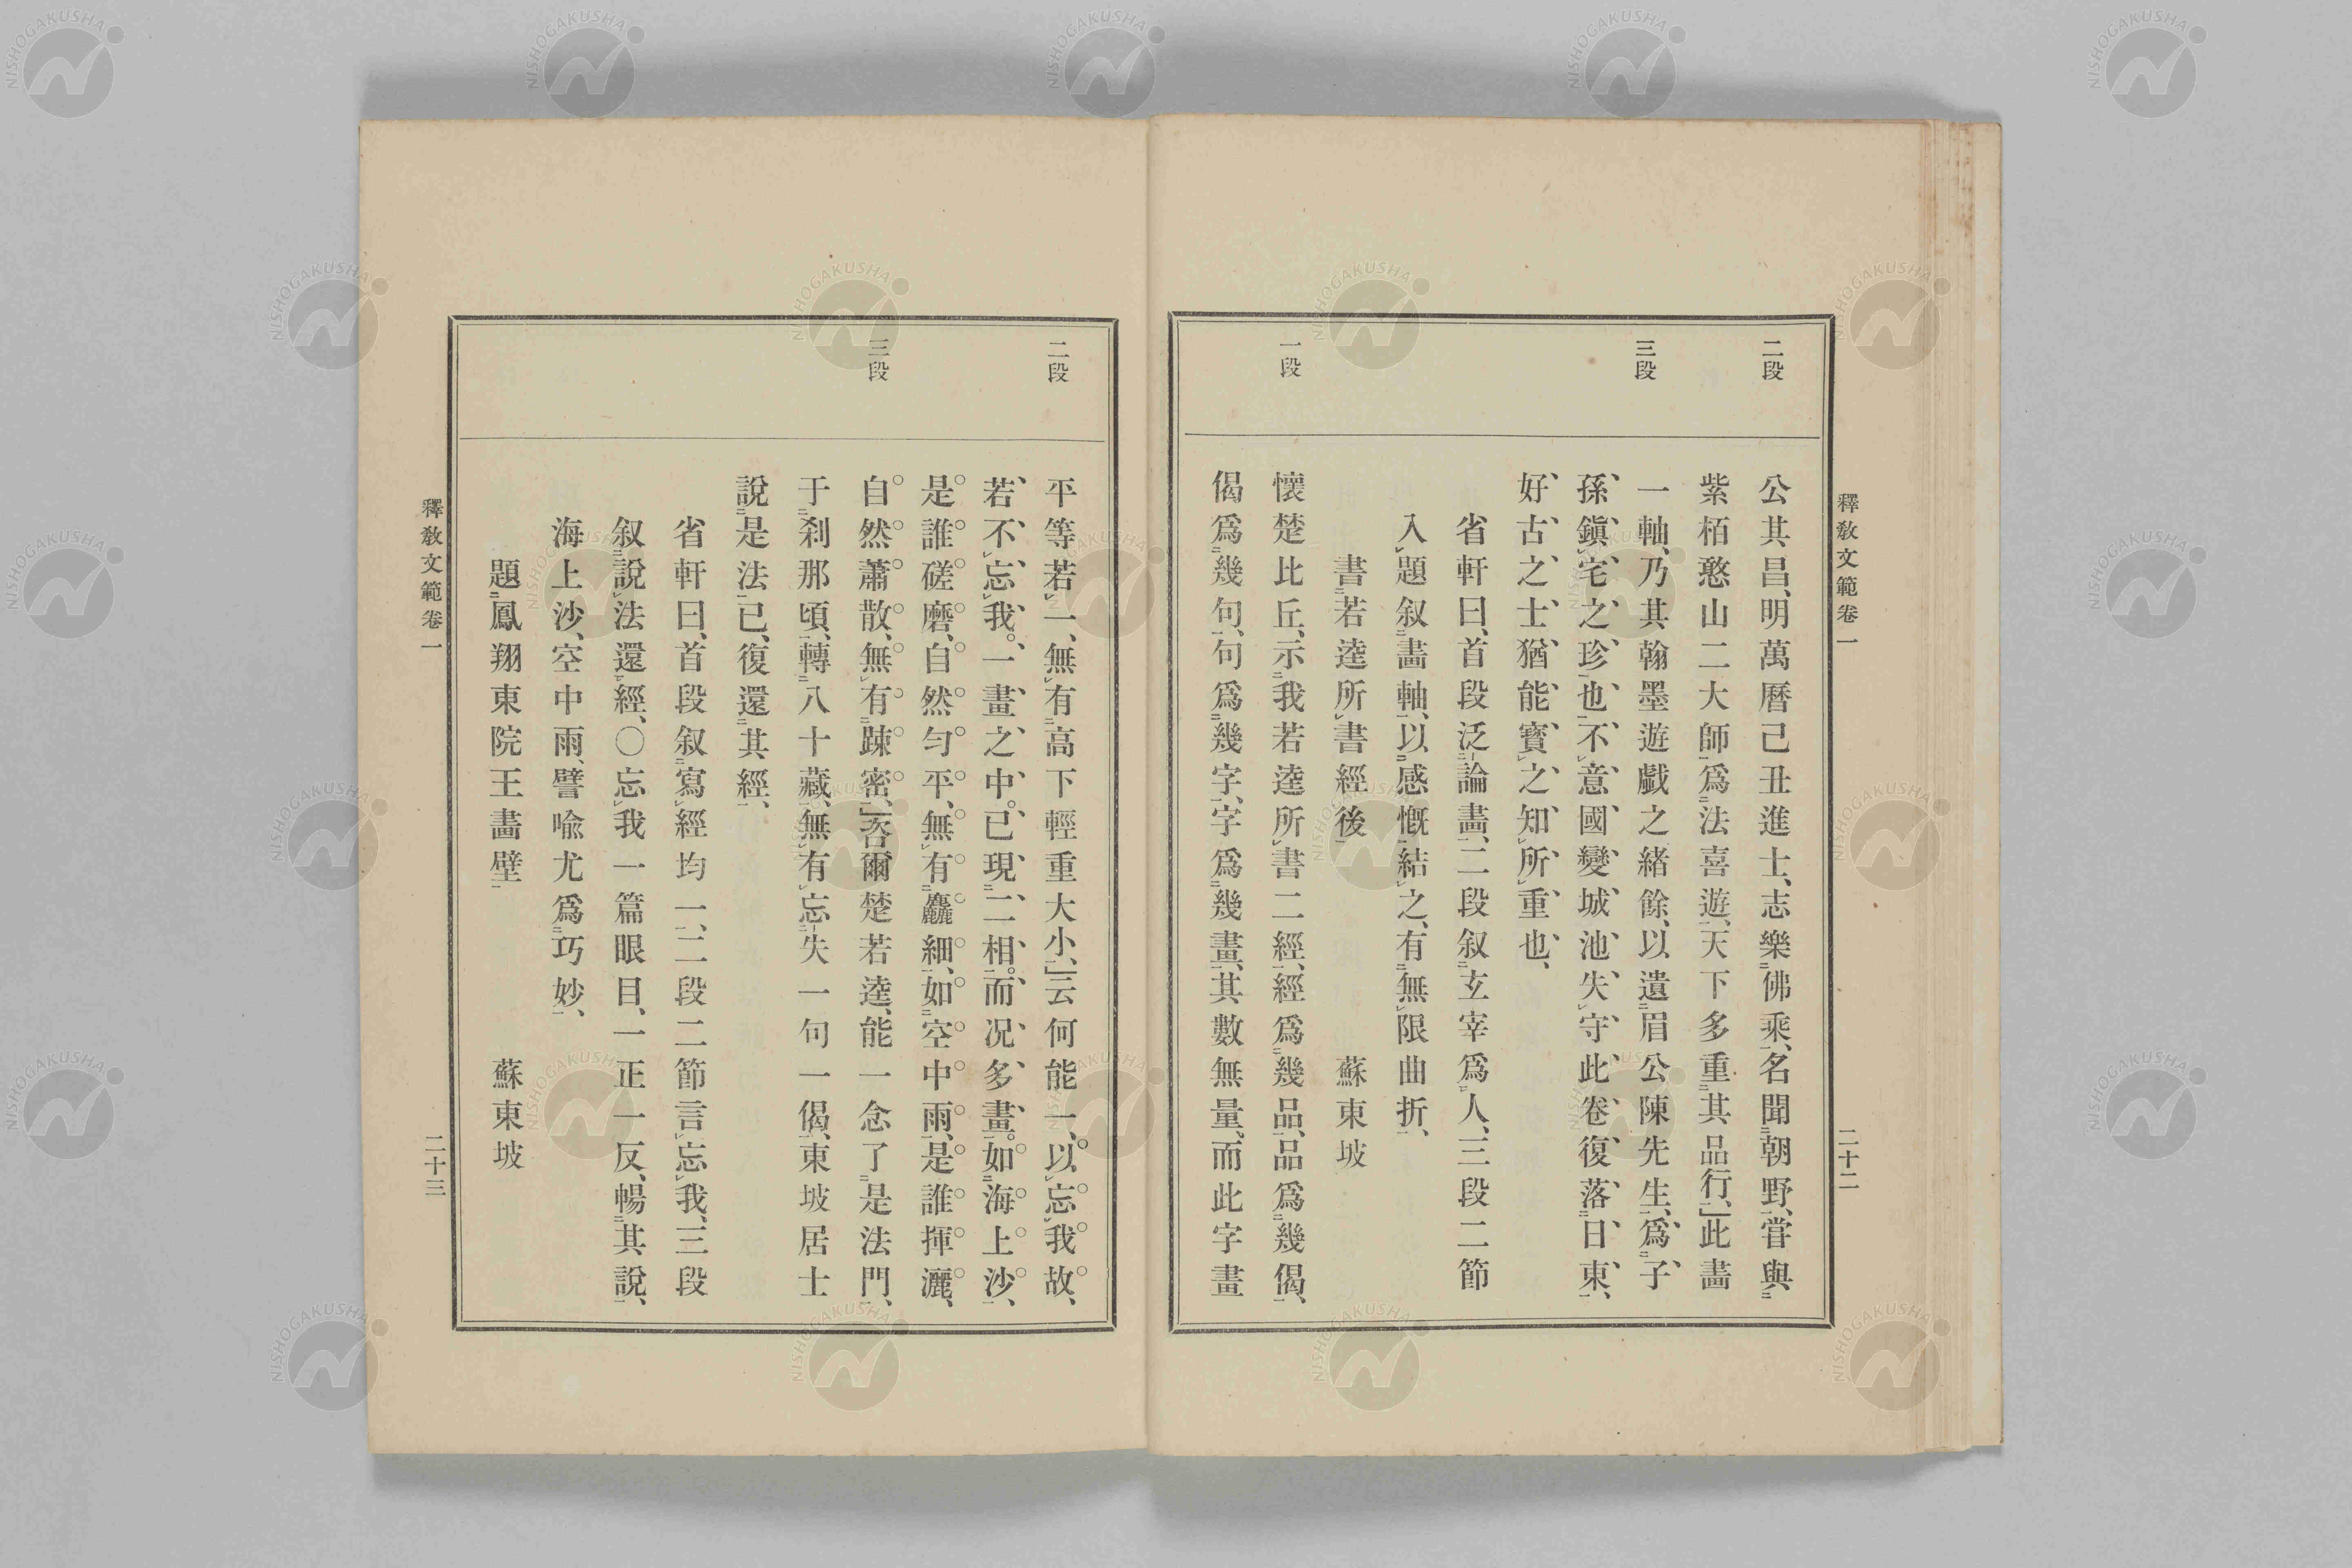 釋敎文範卷一
二十二
二段
三段
一段
公其昌、明萬曆己丑進士、志樂佛乘、名聞朝野、甞與
紫栢憨山二大師爲法喜遊、天下多重其品行、」此畵
一軸、乃其翰墨遊戱之緖餘、以遺眉公陳先生、爲子
孫鎭宅之珍也、不意國變城池失守、此卷復落日東、
好古之士猶能寳之知所重也、
省軒曰、首段泛論畵、二段叙玄宰爲人、三段二節
入題叙畵軸、以感慨結之、有無限曲折、
書若逵所書經後 蘇東坡
懷楚比丘、示我若逵所書二經、經爲幾品、品爲幾偈、
偈爲幾句、句爲幾字、字爲幾畫、其數無量、而此字畫
二段
三段
平等若一、無有高下輕重大小、」云何能一、以忘我故、
若不忘我。一畫之中。已現二相。而况多畫。如海上沙、
是誰磋磨、自然勻平、無有麤細、如空中雨、是誰揮灑、
自然蕭散、無有踈密、」咨爾楚若逵、能一念了是法門、
于刹那頃、轉八十藏、無有忘失一句一偈、東坡居士
說是法已、復還其經、
省軒曰、首段叙寫經均一、二段二節言忘我、三段
叙說法還經、〇忘我一篇眼目、一正一反、暢其說、
海上沙、空中雨、譬喩尤爲巧妙、
題鳳翔東院王畵壁 蘇東坡
釋敎文範卷一
二十三
NISHOGAKUSHA